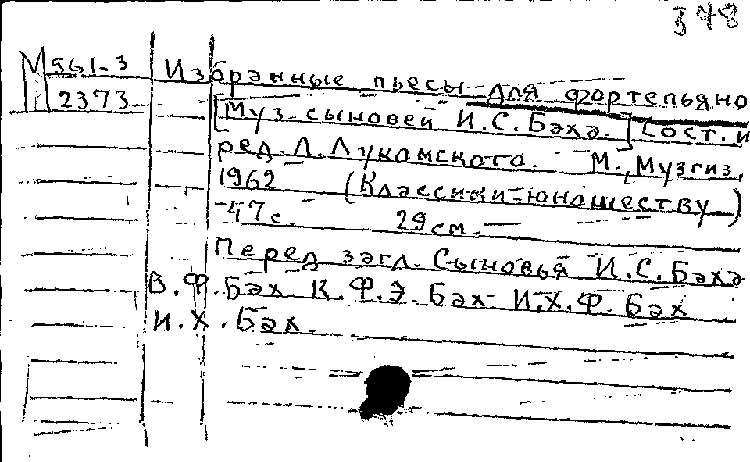 348
М 561-3
2373
Избранные пьесы для фортепьяно
[Муз. сыновей И.С. Баха.] Сост. и
ред. Л. Лукомского. М., Музгиз,
1962 (Классики-юношеству)
47 с. 29 см. —
Перед загл. Сыновья И.С. Баха
В.Ф. Бах К.Ф.Э. Бах И.Х.Ф. Бах
И.Х. Бах.